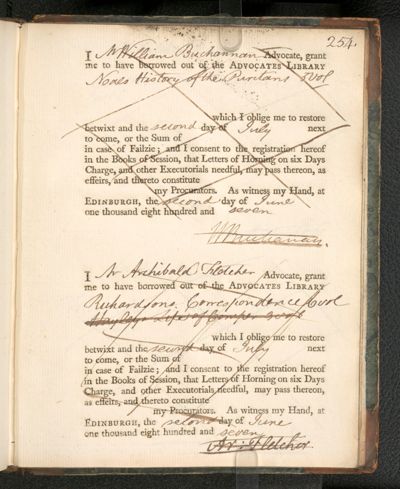 254
I Mr William Buchannan Advocate, grant
me to have borrowed out of the ADVOCATES LIBRARY
Neals History of the Puritans 5 vol
which I oblige me to restore
betwixt and the second day of July next
to come, or the Sum of
in case of Failzie; and I consent to the registration hereof
in the Books of Session, that Letters of Horning on six Days
Charge, and other Executorials needful, may pass thereon, as
effeirs, and thereto constitute
my Procurators. As witness my Hand, at
EDINBURGH, the second day of June
one thousand eight hundred and seven
W Buchanan.
I Mr Archibald Fletcher Advocate, grant
me to have borrowed out of the ADVOCATES LIBRARY
Richardsons Correspondence 6 vol
Hayleys Life of Cowper 3 vol
which I oblige me to restore
betwixt and the second day of July next
to come, or the Sum of
in case of Failzie; and I consent to the registration hereof
in the Books of Session, that Letters of Horning on six Days
Charge, and other Executorials needful, may pass thereon,
as effeirs, and thereto constitute
my Procurators. As witness my Hand, at
EDINBURGH, the second day of June
one thousand eight hundred and seven
Ar: Fletcher